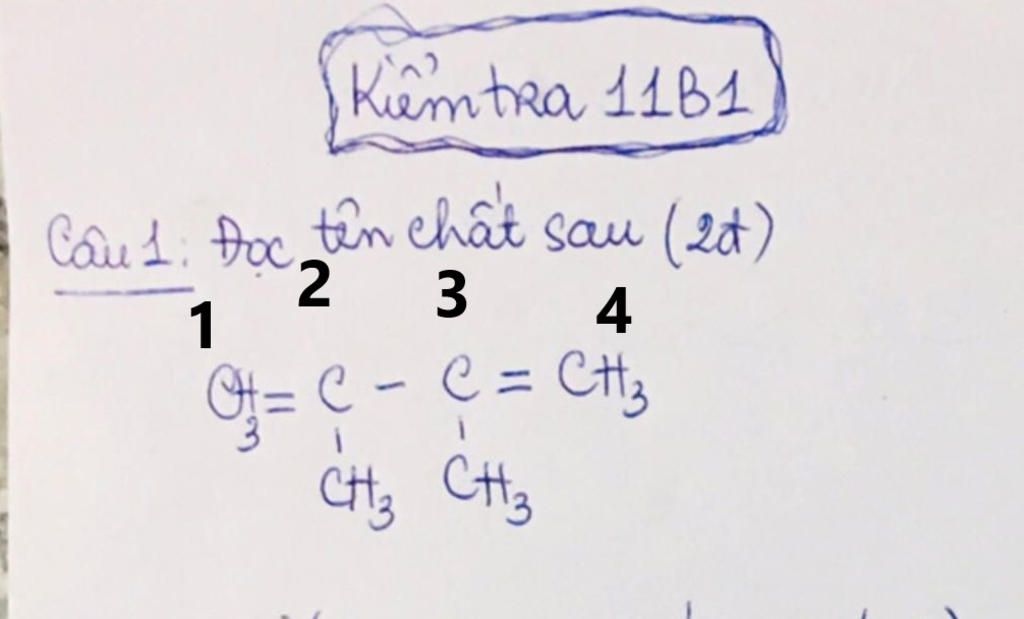 Kiểm tra 11B1
Câu 1: Đọc tên chất sau (2đ)
1 2 3 4
CH3 = C - C = CH3
CH3 CH3